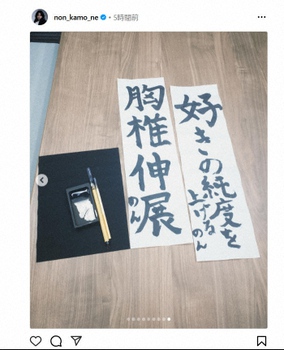 non_kamo_ne
5時間前
好きの純度を
上げる
のん
胸椎伸展
のん